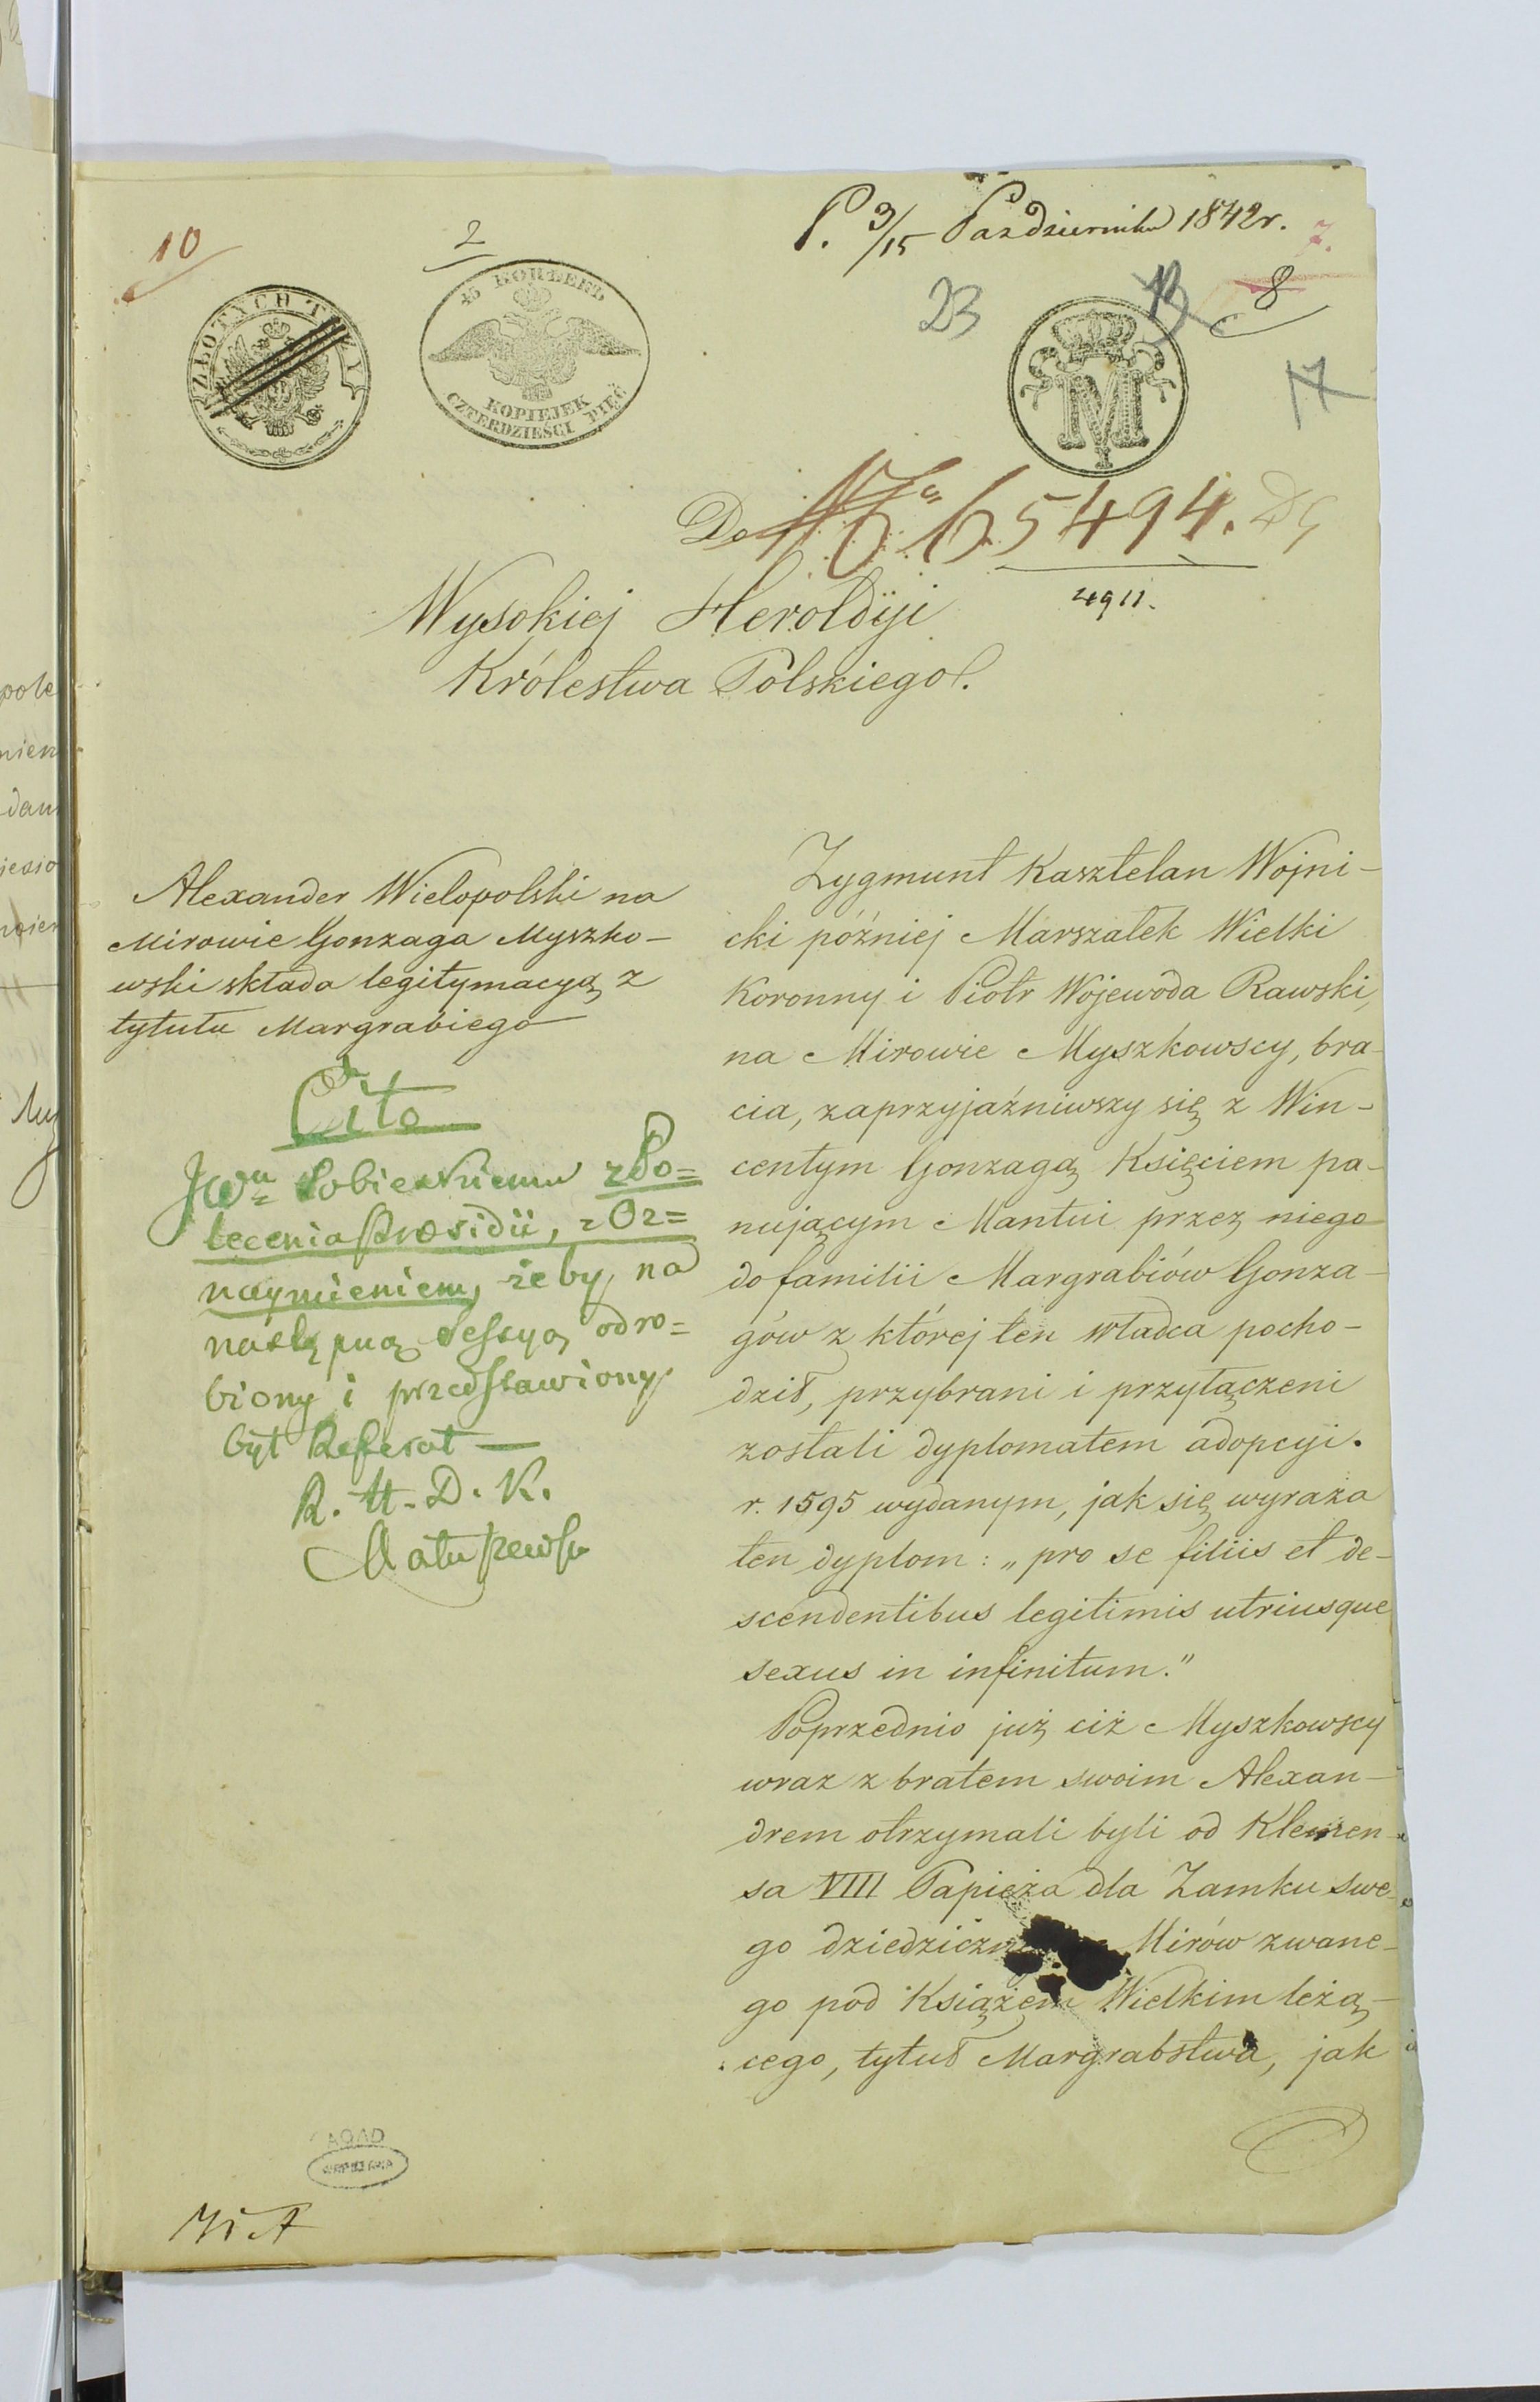 P. 3/15 Października 1842 r.
10
2
7.
8
23
13
17
ZŁOTYCH TRZY
45 КОПѢЕКЪ
KOPIEJEK
CZTERDZIEŚCI PIĘĆ
M
Do
65494.
4911.
Wysokiej Heroldyi
Królestwa Polskiego.
Alexander Wielopolski na
Mirowie Gonzaga Myszko-
wski składa legitymacyą z
tytułu Margrabiego
Cito
JWu Sobieskiemu z Po=
lecenia Prosidii, z Oz=
naymieniem, żeby na
następną Sessyą odro=
biony i przedstawiony
był Referat —
R. H. D. K.
Zygmunt Kasztelan Wojni-
cki później Marszałek Wielki
Koronny i Piotr Wojewoda Rawski,
na Mirowie Myszkowscy, bra-
cia, zaprzyjaźniwszy się z Win-
centym Gonzagą Księciem pa-
nującym Mantui przez niego
do familii Margrabiów Gonza-
gów z której ten władca pocho-
dził, przybrani i przyłączeni
zostali dyplomatem adopcyi.
r. 1595 wydanym, jak się wyraża
ten dyplom: „pro se filiis et de-
scendentibus legitimis utriusque
sexus in infinitum."
Poprzednio już ciż Myszkowscy
wraz z bratem swoim Alexan-
drem otrzymali byli od Klemen-
sa VIII Papieża dla Zamku swe-
go Mirów zwane-
go pod Książem Wielkim leżą-
cego, tytuł Margrabstwa, jak
AGAD
WARSZAWA